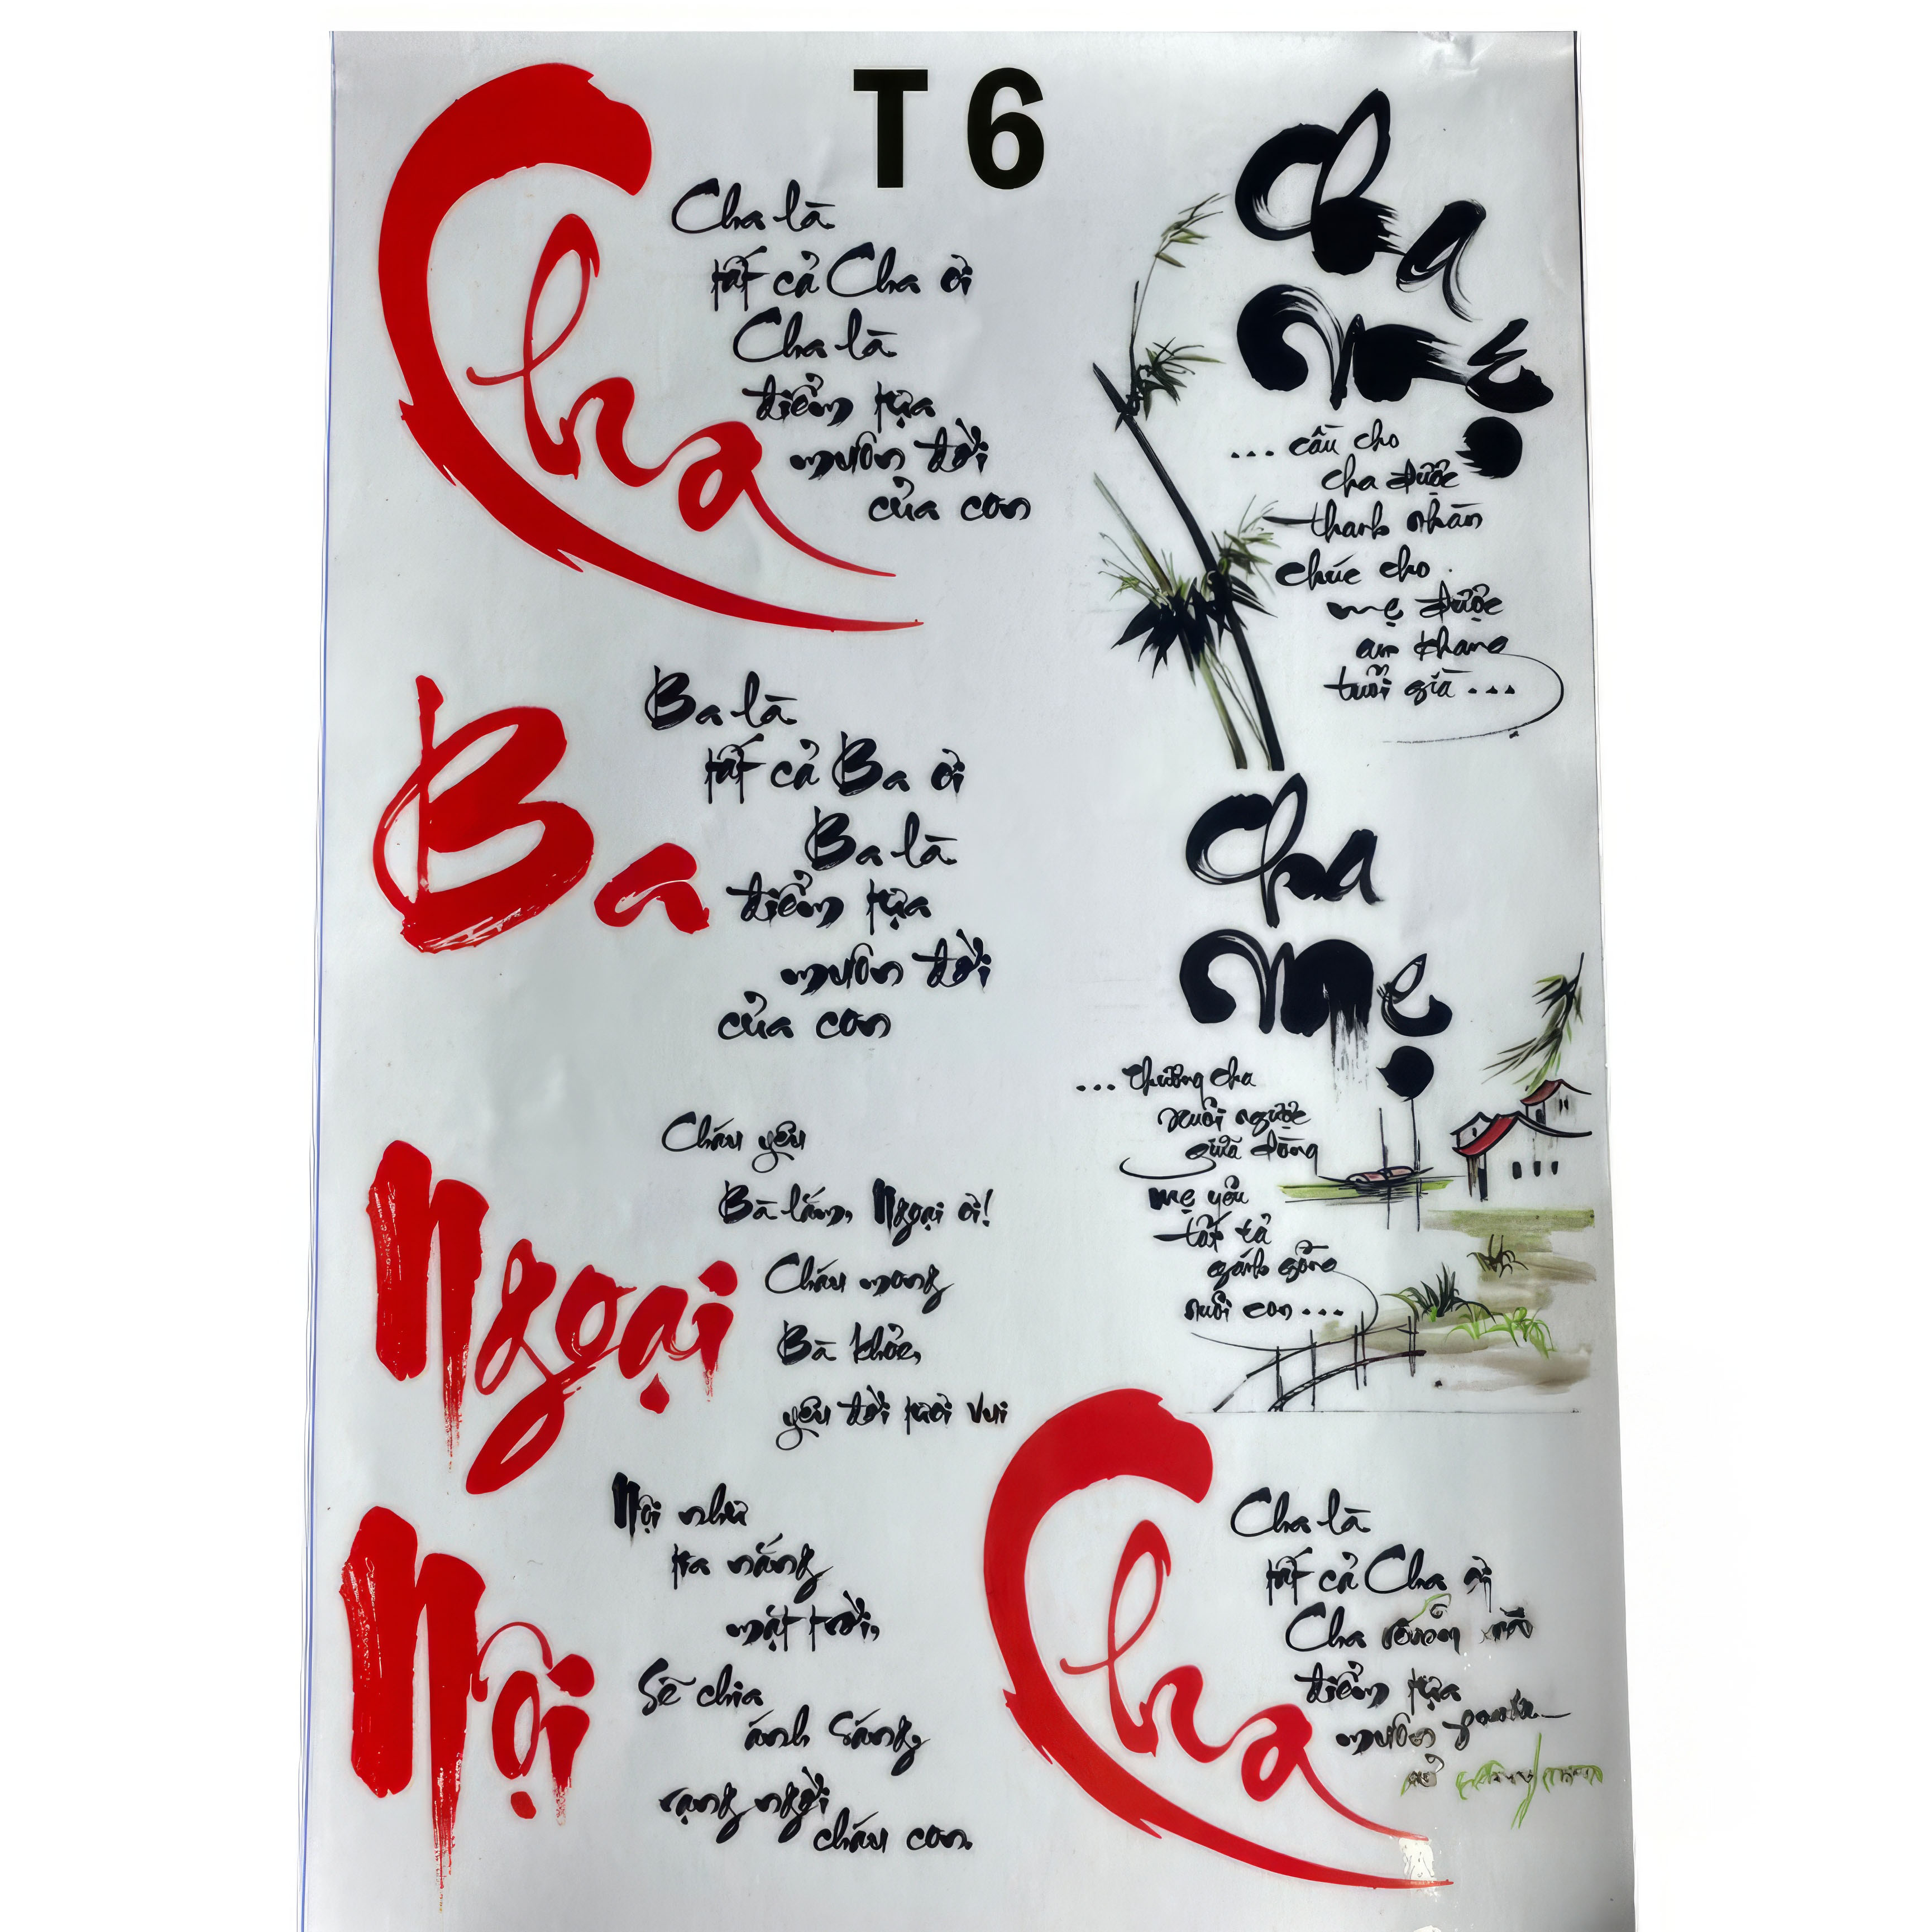 T 6
Cha
Cha là
tất cả Cha ơi
Cha là
điểm tựa
muôn đời
của con
Ba
Ba là
tất cả Ba ơi
Ba là
điểm tựa
muôn đời
của con
Ngoại
Cháu yêu
Bà lắm, Ngoại ơi!
Cháu mong
Bà khỏe,
yêu đời tươi vui
Nội
Nội như
tia nắng
mặt trời,
Sẽ chia
ánh sáng,
rạng ngời
cháu con.
Cha
Mẹ
... cầu cho
cha được
thanh nhàn
chúc cho
mẹ được
an khang
tuổi già ...
Cha
Mẹ
... thương cha
xuôi ngược
giữa dòng
mẹ yêu
tất tả
gánh gồng
nuôi con ...
Cha
Cha là
tất cả Cha ơi
Cha
điểm tựa
muôn